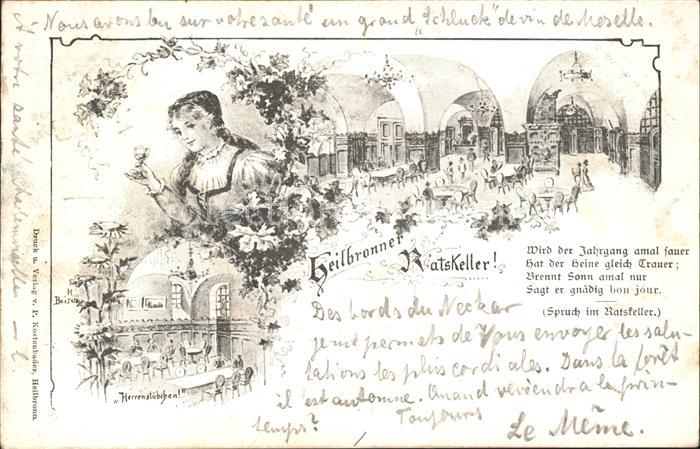 Nous avons bu sur votre santé un grand „Schluck" de vin de Moselle.
A votre santé!
Heilbronner Ratskeller!
Wird der Jahrgang amal sauer
Hat der Heine gleich Trauer;
Brennt Sonn amal nur
Sagt er gnädig bon jour.
(Spruch im Ratskeller.)
Des bords du Neckar
je me permets de Vous envoyer les salu-
tations les plus cordiales. Dans la forêt
il est automne. Quand reviendra le prin-
temps?
Toujours
Le Même.
„Herrenstübchen!"
Druck u. Verlag v. P. Kostenbader, Heilbronn.